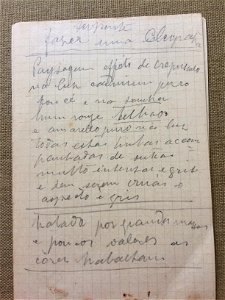 serpente
fazer uma Cleopatra
Paysagem effeito de crepusculo
na luz cadmium puro
por cé e no
hum rouge
e amarello puro na luz
todas estas tintas acom
panhadas de outras
muito intensas e gris
e sem serem cruas o
aspecto é gris
tratado por grandes massas
e poucos valores as
cores trabalham